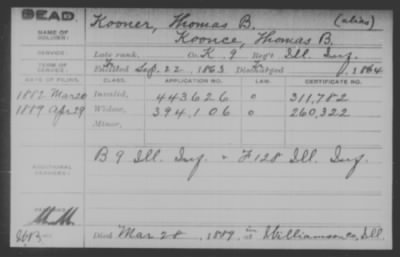 DEAD.
NAME OF SOLDIER: Kooner, Thomas B. (alias)
Koonce, Thomas B.
SERVICE: Late rank, Co. K, 9 Reg't Ill. Inf.
TERM OF SERVICE: Enlisted Sep. 22, 1863 Discharged , 1864
DATE OF FILING. CLASS. APPLICATION NO. LAW. CERTIFICATE NO.
1882 Mar 20 Invalid, 443626 0 311,782
1889 Apr 29 Widow, 394,106 0 260,322
Minor,
ADDITIONAL SERVICES: B 9 Ill. Inf. & F 128 Ill. Inf.
REMARKS:
Died Mar 28, 1889, at Williamson Co, Ill.